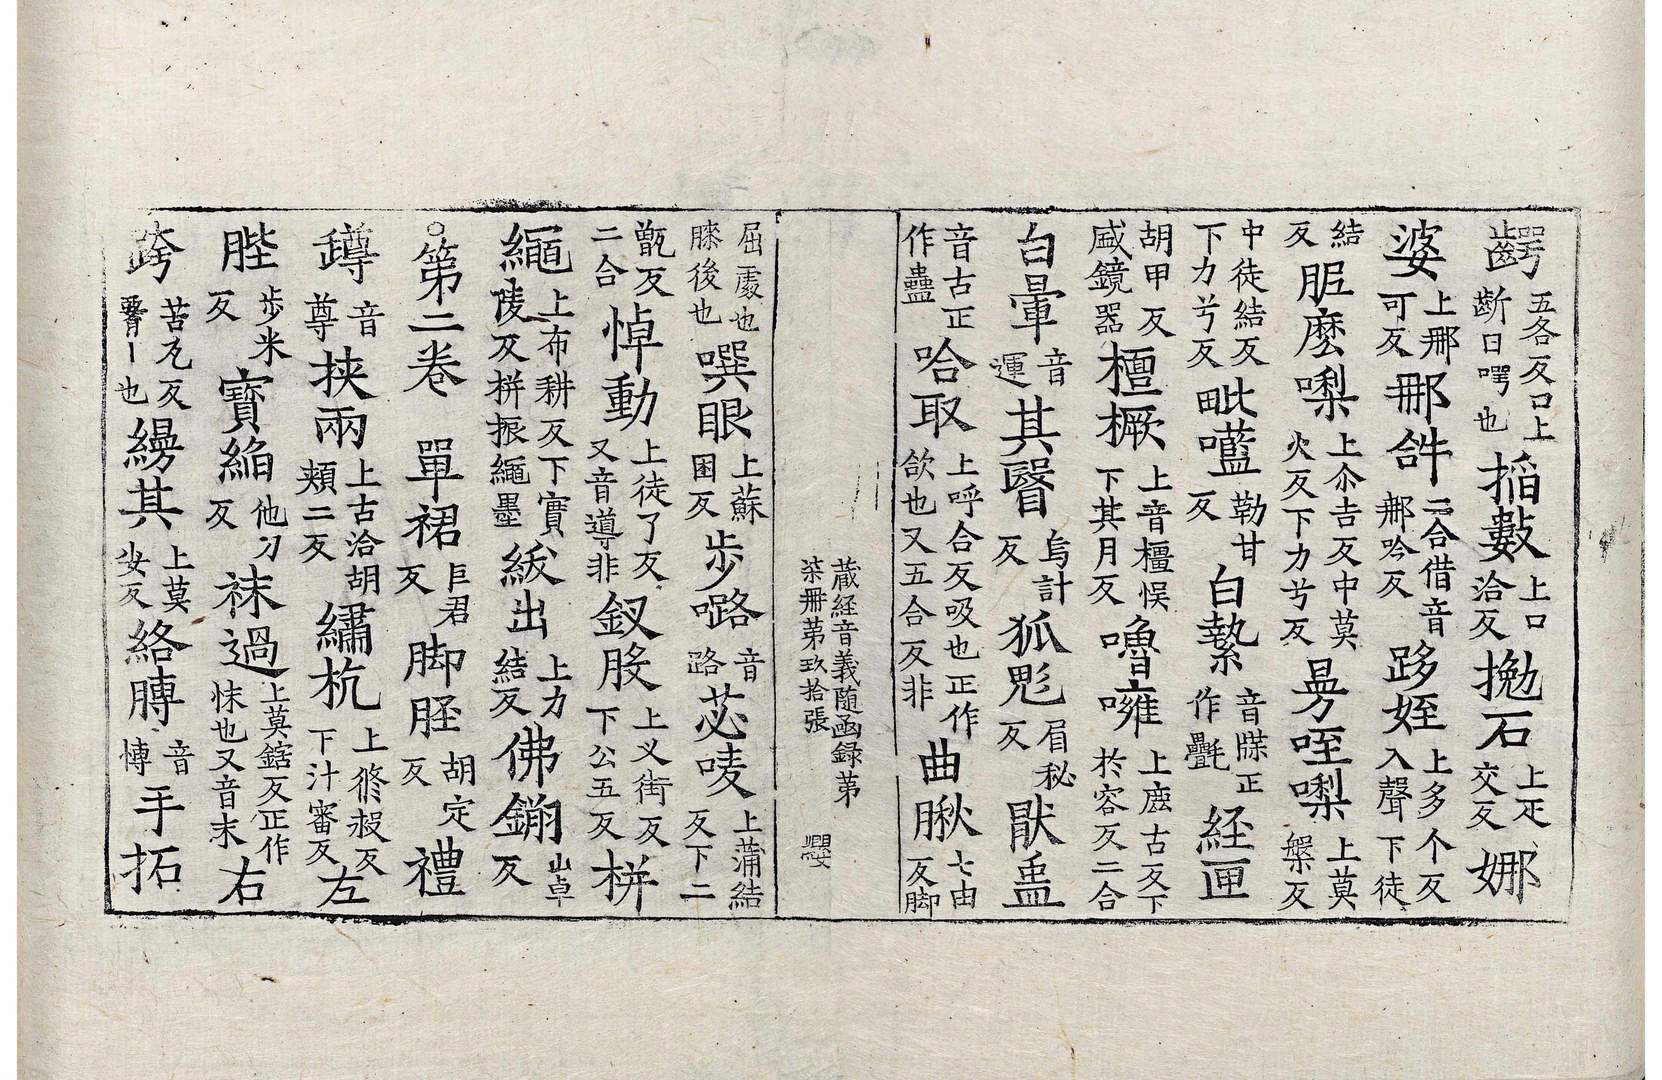 齶五各反口上齗曰㗁也搯數上口洽反𢭏石上疋交反娜
婆上那可反𨙻𧥣二合借音𨙻吟反跢姪上多个反下徒
結反胒麼㗚上尒吉反中莫火反下力兮反㝵咥㗚上莫槃反
中徒結反下力兮反毗㘕勒甘反白㲲音牒正作氎経匣
胡甲反盛鏡器檀橛上音檀悮下其月反嚕嗈上鹿古反下於容反二合
白暈音運其瞖烏計反狐魅眉秘反猒蛊
音古正作蠱哈取上呼合反吸也正作欱也又五合反非曲脉七由反脚
藏経音義随函録第柒冊第玖拾張 纓
屈䖏也膝後也噀眼上蘇困反步嚕音路苾唛上蒲結反下二
甑反二合悼動上徒了反又音導非釵股上义街反下公五反栟
繩上布耕反下實陵反栟振繩墨綟出上力結反佛鎙山卓反
○第二卷 單裙巨君反脚脛胡定反禮
蹲音尊挟兩上古洽胡頰二反繡杭上脩救反下汁審反左
䏶步米反寳縚他刀反袜過上莫鎋反正作怽也又音末右
跨苦瓦反䯊丨也縵其上莫安反絡膞音慱手拓